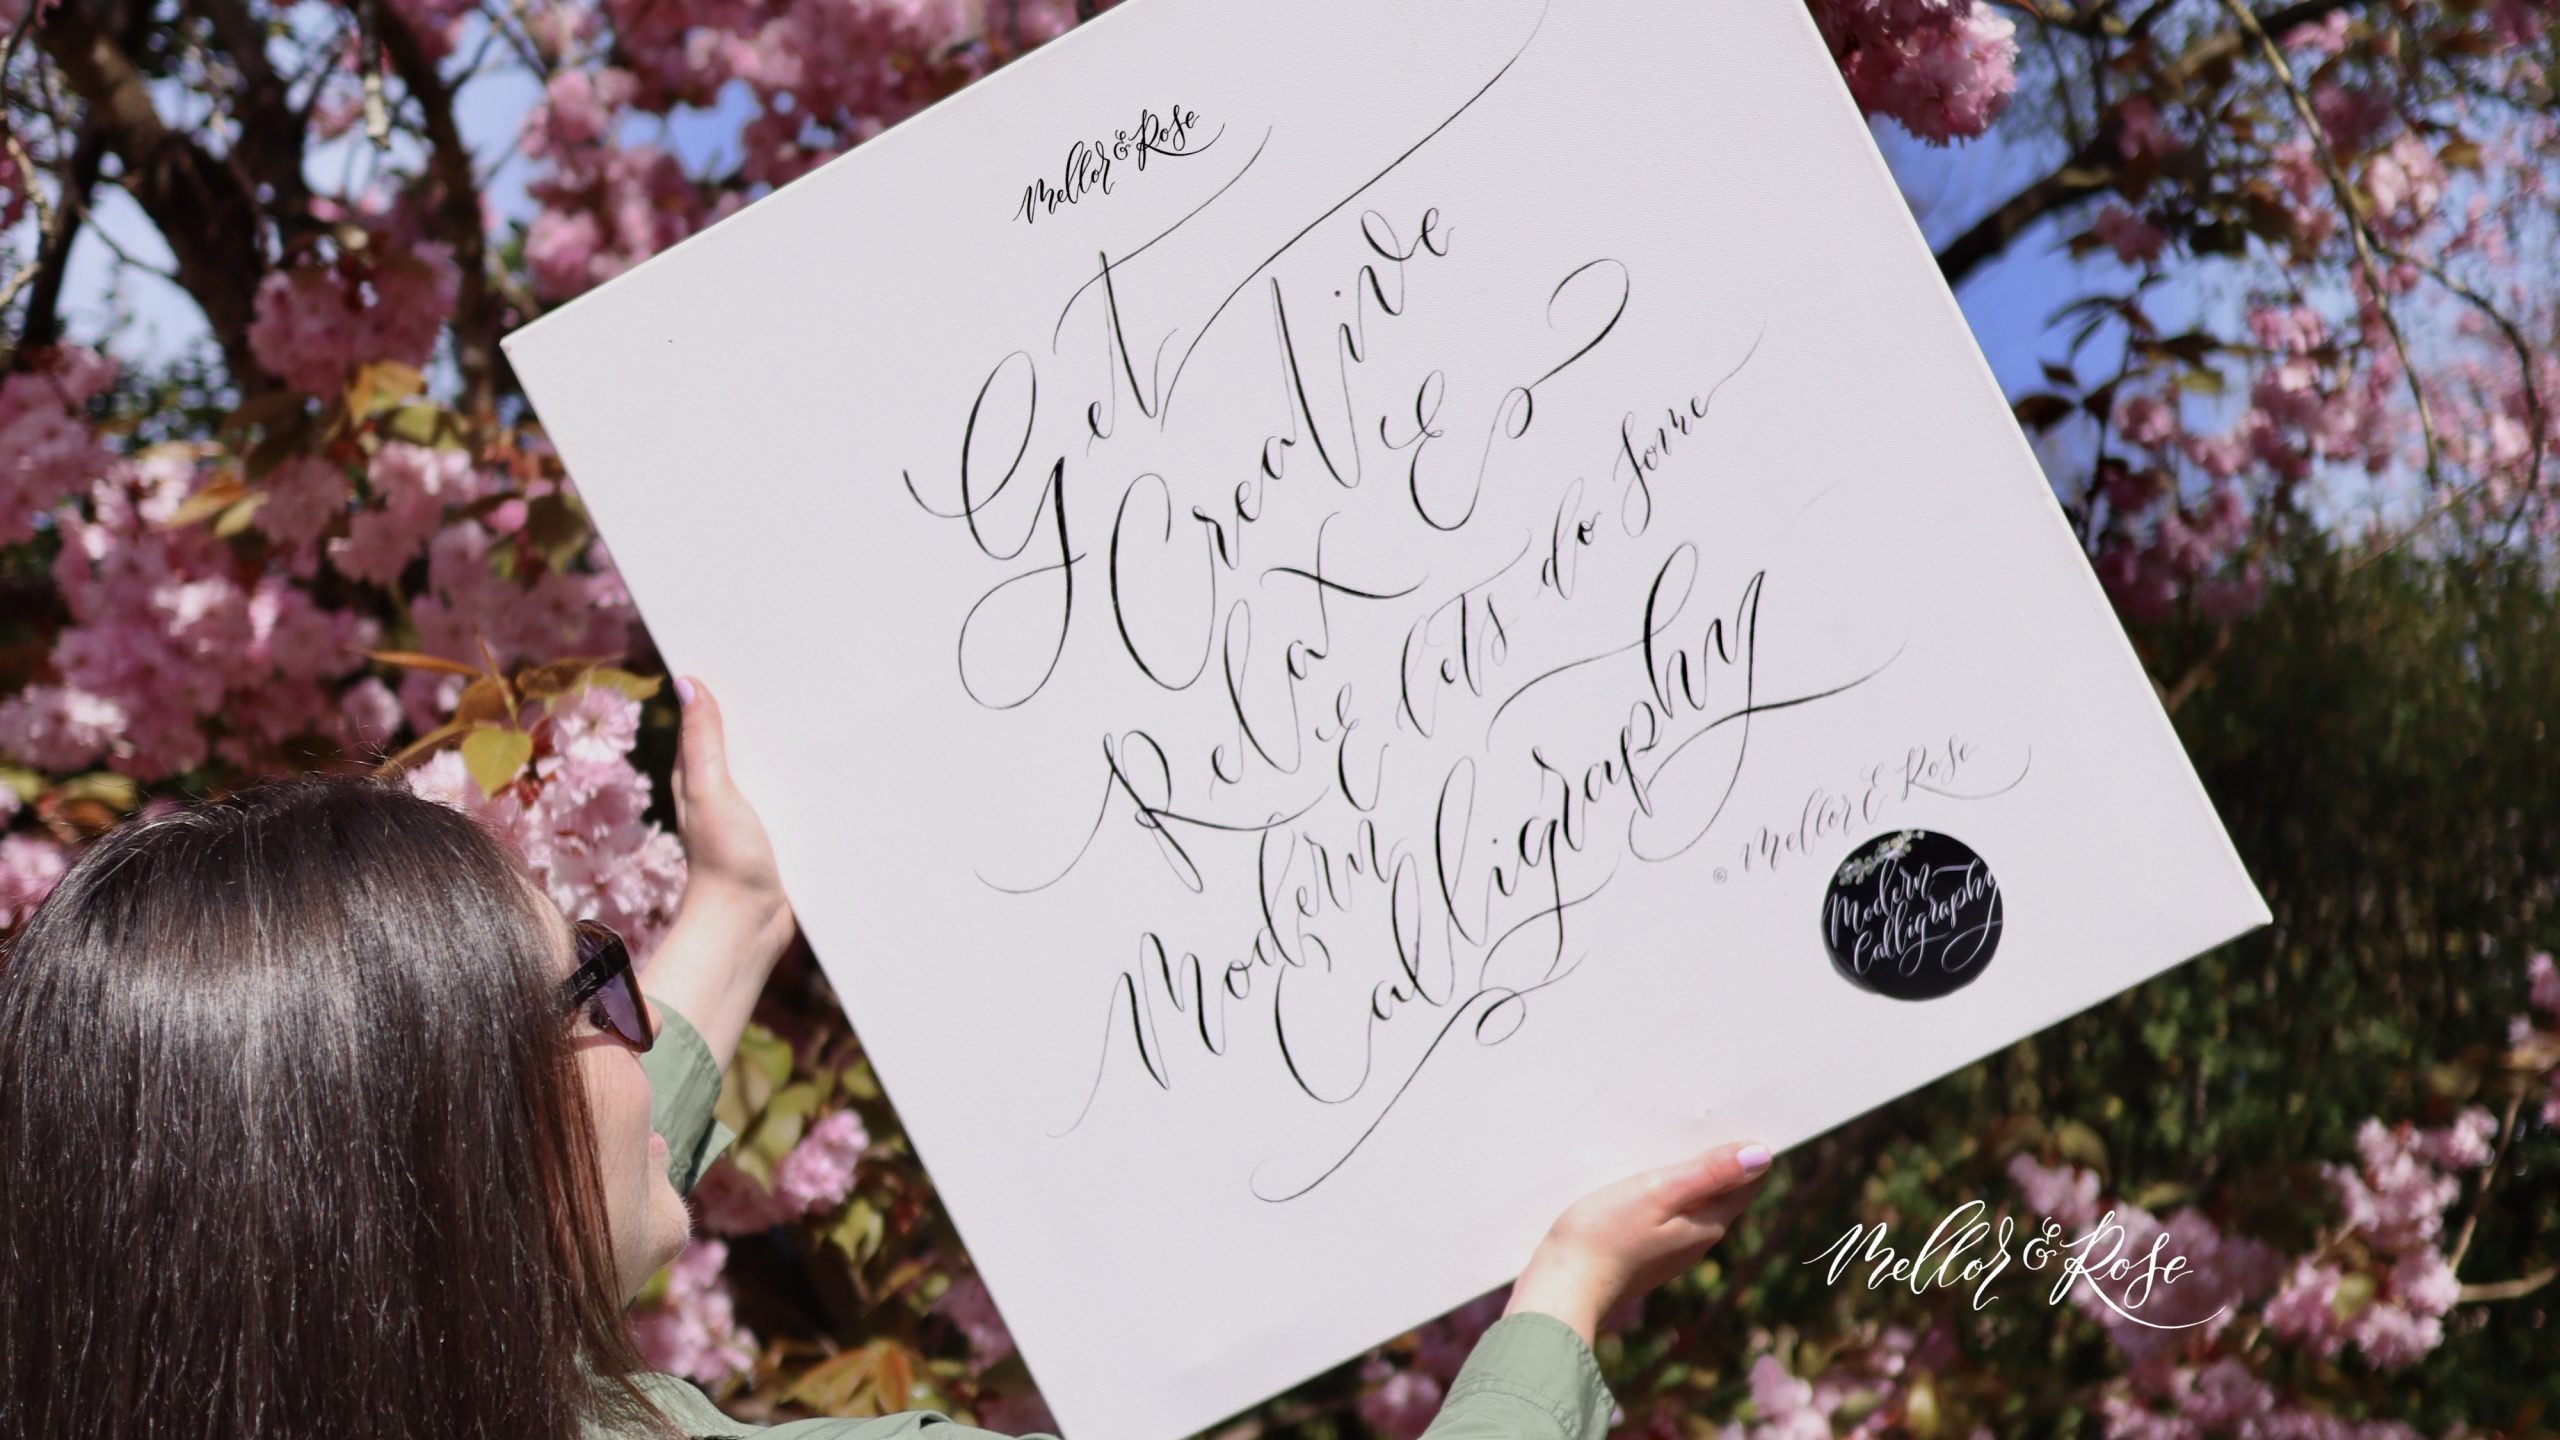 Mellor & Rose
Get
Creative &
Relax
& lets do some
Modern
Calligraphy
© Mellor & Rose
Modern
Calligraphy
Mellor & Rose